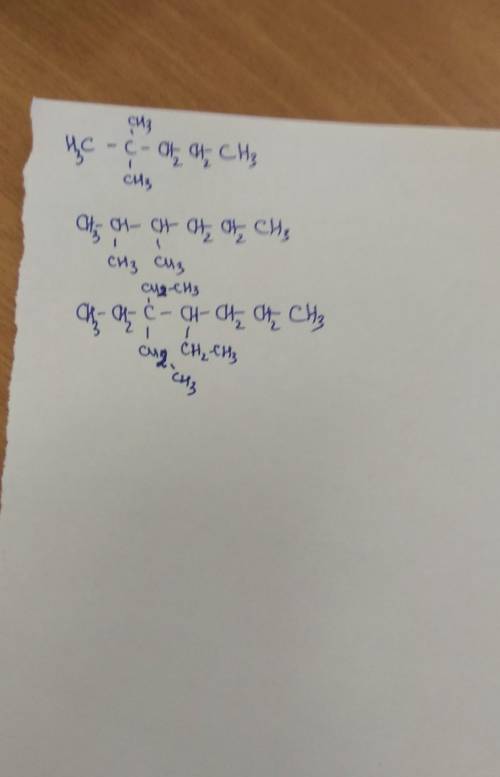 CH3
H3C - C - CH2 CH2 CH3
CH3
CH3- CH- CH- CH2- CH2- CH3
CH3 CH3
CH2-CH3
CH3- CH2- C - CH- CH2- CH2- CH3
CH2 CH2-CH3
CH3